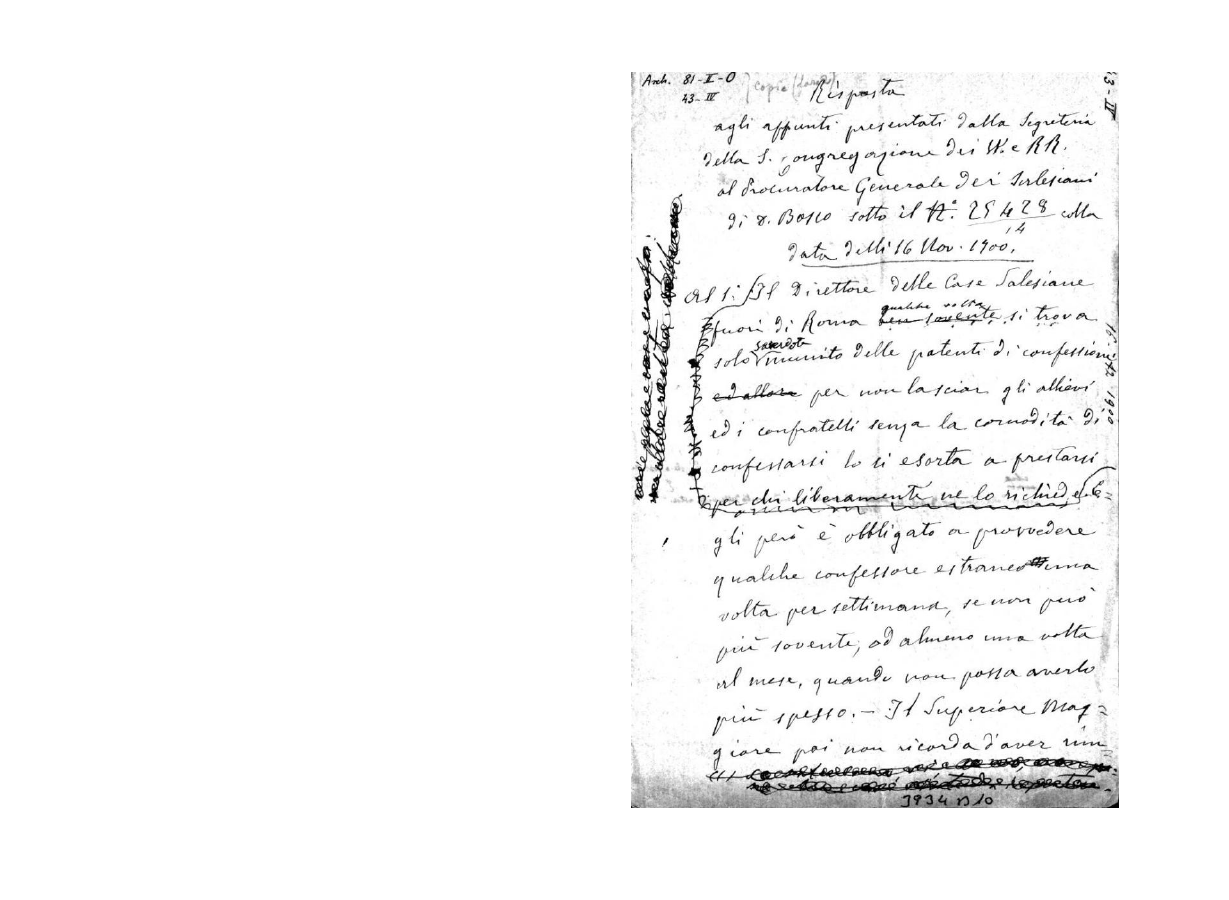 Arch. 81-II-O
43-IV
copia
Risposta
agli appunti presentati dalla Segreteria
della S. Congregazione dei VV. e RR.
al Procuratore Generale dei Salesiani
di D. Bosco sotto il N.° 25428 colla
14
data delli 16 Nov. 1900.
Al 1: Il Direttore delle Case Salesiane
qualche volta
fuori di Roma ben sovente si trova
sacerdote
solo munito delle patenti di confessione
ed allora per non lasciar gli allievi
ed i confratelli senza la comodità di
confessarsi lo si esorta a prestarsi
per chi liberamente ne lo richiede. E=
gli però è obbligato a provvedere
qualche confessore estraneo una
volta per settimana, se non può
più sovente, od almeno una volta
al mese, quando non possa averlo
più spesso. — Il Superiore Mag=
giore poi non ricorda d'aver rim
3934 B 10
43-IV
1900